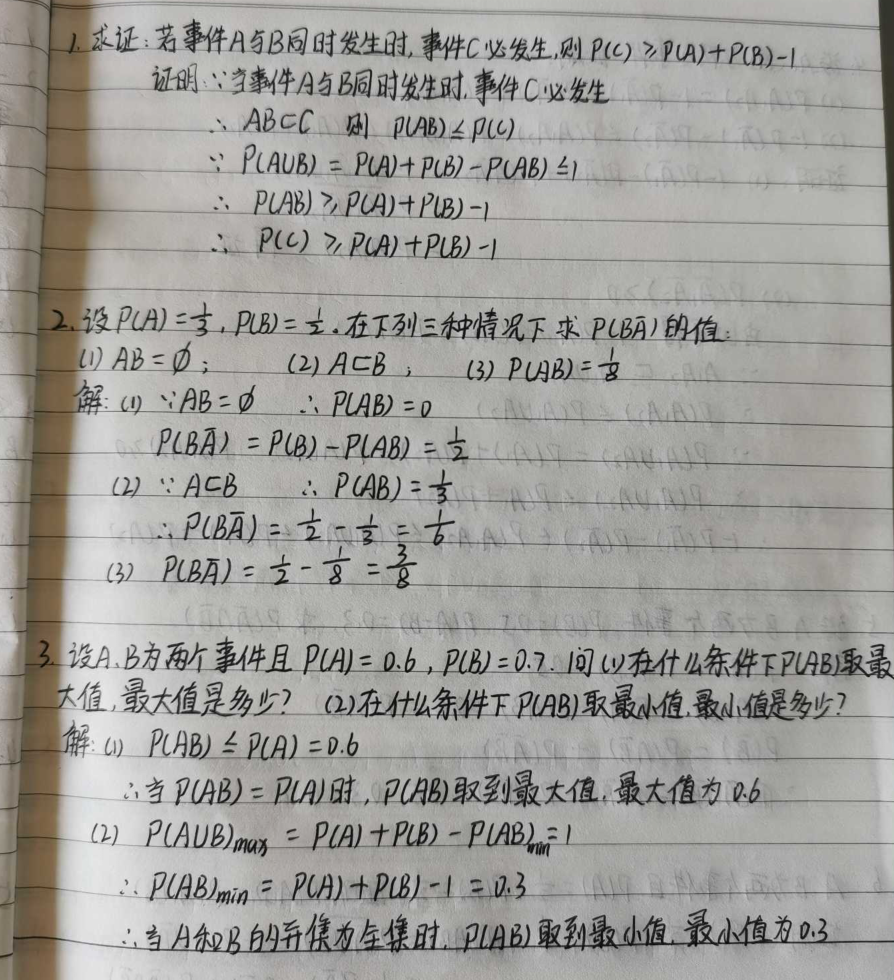 1. 求证:若事件A与B同时发生时,事件C必发生,则 P(C) ≥ P(A)+P(B)-1
证明:∵当事件A与B同时发生时,事件C必发生
∴ AB⊂C 则 P(AB) ≤ P(C)
∵ P(A∪B) = P(A)+P(B)-P(AB) ≤ 1
∴ P(AB) ≥ P(A)+P(B)-1
∴ P(C) ≥ P(A)+P(B)-1
2. 设P(A)=1/3, P(B)=1/2. 在下列三种情况下求 P(BĀ)的值:
(1) AB=∅; (2) A⊂B; (3) P(AB)=1/8
解: (1) ∵AB=∅ ∴ P(AB)=0
P(BĀ) = P(B)-P(AB) = 1/2
(2) ∵ A⊂B ∴ P(AB)=1/3
∴P(BĀ) = 1/2 - 1/3 = 1/6
(3) P(BĀ) = 1/2 - 1/8 = 3/8
3. 设A、B为两个事件且 P(A)=0.6, P(B)=0.7. 问(1)在什么条件下P(AB)取最
大值,最大值是多少? (2)在什么条件下P(AB)取最小值,最小值是多少?
解: (1) P(AB) ≤ P(A)=0.6
∴当P(AB)=P(A)时, P(AB)取到最大值, 最大值为0.6
(2) P(A∪B)max = P(A)+P(B)-P(AB)min=1
∴ P(AB)min = P(A)+P(B)-1 = 0.3
∴当A和B的并集为全集时, P(AB)取到最小值, 最小值为0.3